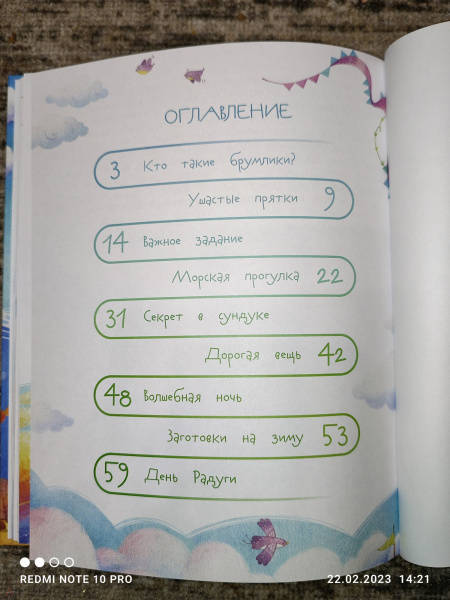 ОГЛАВЛЕНИЕ
3 Кто такие брумлики?
Ушастые прятки 9
14 Важное задание
Морская прогулка 22
31 Секрет в сундуке
Дорогая вещь 42
48 Волшебная ночь
Заготовки на зиму 53
59 День Радуги
REDMI NOTE 10 PRO 22.02.2023 14:21